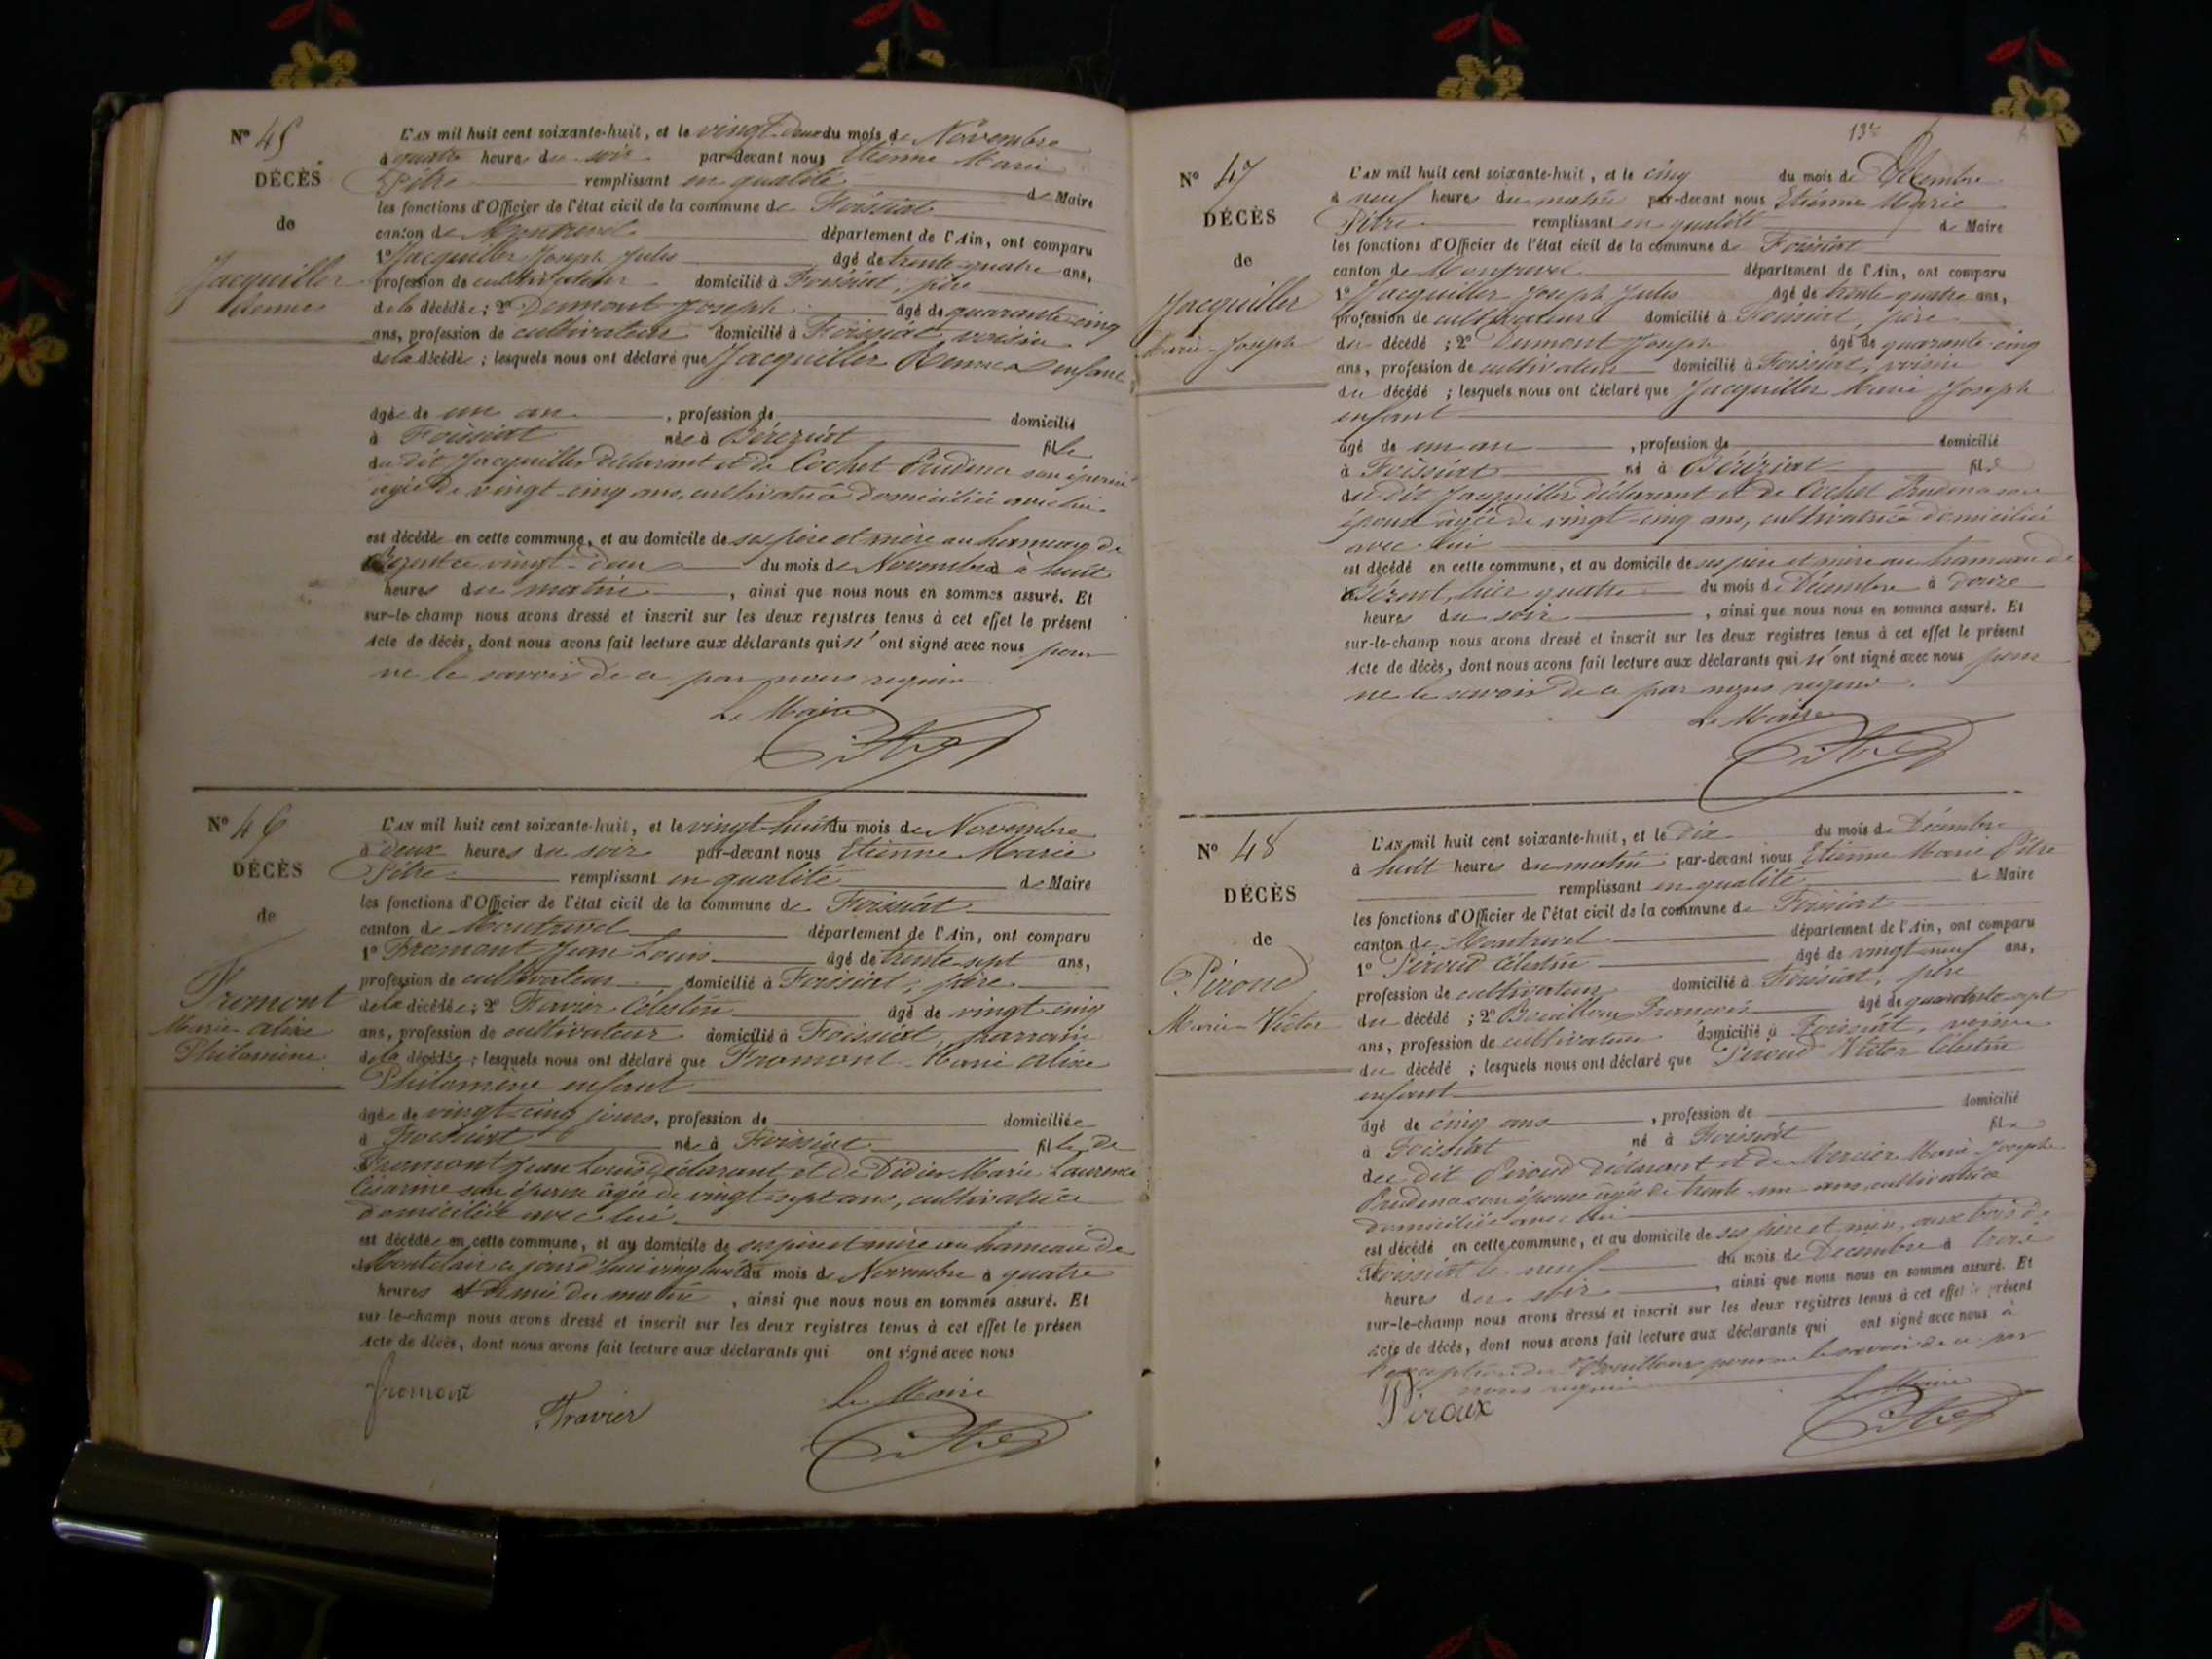 N° 45
DÉCÈS
de
Jacquiller
L'AN mil huit cent soixante-huit, et le vingt-deux du mois de Novembre
à quatre heures du soir par-devant nous Etienne Marie
Pitre remplissant en qualité de Maire
les fonctions d'Officier de l'état civil de la commune de Foissiat
canton de Montrevel département de l'Ain, ont comparu
1° Jacquiller Joseph Jules âgé de trente-quatre ans,
profession de cultivateur domicilié à Foissiat, père
de la décédée; 2° Dumont Joseph âgé de quarante-cinq
ans, profession de cultivateur domicilié à Foissiat, voisin
de la décédée; lesquels nous ont déclaré que Jacquiller enfant
âgée de un an, profession de domicilié
à Foissiat née à Béréziat fille
du dit Jacquiller déclarant et de Cochet Prudence son épouse
âgée de vingt-cinq ans, cultivatrice domiciliée avec lui
est décédée en cette commune, et au domicile de ses père et mère au hameau de
ce vingt-deux du mois de Novembre à huit
heures du matin, ainsi que nous nous en sommes assuré. Et
sur-le-champ nous avons dressé et inscrit sur les deux registres tenus à cet effet le présent
Acte de décès, dont nous avons fait lecture aux déclarants qui n'ont signé avec nous pour
ne le savoir de ce par nous requis
Le Maire
Pitre
N° 46
DÉCÈS
de
Fromont
Marie Alixe
Philomène
L'AN mil huit cent soixante-huit, et le vingt-huit du mois de Novembre
à deux heures du soir par-devant nous Etienne Marie
Pitre remplissant en qualité de Maire
les fonctions d'Officier de l'état civil de la commune de Foissiat
canton de Montrevel département de l'Ain, ont comparu
1° Fromont Jean Louis âgé de trente-sept ans,
profession de cultivateur domicilié à Foissiat, père
de la décédée; 2° Favier Célestin âgé de vingt-cinq
ans, profession de cultivateur domicilié à Foissiat, parrain
de la décédée; lesquels nous ont déclaré que Fromont Marie Alixe
Philomène enfant
âgée de vingt-cinq jours, profession de domiciliée
à Foissiat née à Foissiat fille de
Fromont Jean Louis déclarant et de Didier Marie Laurence
Césarine son épouse âgée de vingt-sept ans, cultivatrice
domiciliée avec lui
est décédée en cette commune, et au domicile de ses père et mère au hameau de
Montclair ce jourd'hui vingt-huit du mois de Novembre à quatre
heures et demie du matin, ainsi que nous nous en sommes assuré. Et
sur-le-champ nous avons dressé et inscrit sur les deux registres tenus à cet effet le présen
Acte de décès, dont nous avons fait lecture aux déclarants qui ont signé avec nous
fromont
Favier
Le Maire
Pitre
N° 47
DÉCÈS
de
Jacquiller
Marie-Joseph
L'AN mil huit cent soixante-huit, et le cinq du mois de Décembre
à neuf heures du matin par-devant nous Etienne Marie
Pitre remplissant en qualité de Maire
les fonctions d'Officier de l'état civil de la commune de Foissiat
canton de Montrevel département de l'Ain, ont comparu
1° Jacquiller Joseph Jules âgé de trente-quatre ans,
profession de cultivateur domicilié à Foissiat, père
du décédé; 2° Dumont Joseph âgé de quarante-cinq
ans, profession de cultivateur domicilié à Foissiat, voisin
du décédé; lesquels nous ont déclaré que Jacquiller Marie Joseph
enfant
âgé de un an, profession de domicilié
à Foissiat né à Béréziat fils
du dit Jacquiller déclarant et de Cochet Prudence son
épouse âgée de vingt-cinq ans, cultivatrice domiciliée
avec lui
est décédé en cette commune, et au domicile de ses père et mère au hameau de
hier quatre du mois de Décembre à douze
heures du soir, ainsi que nous nous en sommes assuré. Et
sur-le-champ nous avons dressé et inscrit sur les deux registres tenus à cet effet le présent
Acte de décès, dont nous avons fait lecture aux déclarants qui n'ont signé avec nous pour
ne le savoir de ce par nous requis.
Le Maire
Pitre
N° 48
DÉCÈS
de
Piroud
Marie-Victor
L'AN mil huit cent soixante-huit, et le dix du mois de Décembre
à huit heures du matin par-devant nous Etienne Marie Pitre
remplissant en qualité de Maire
les fonctions d'Officier de l'état civil de la commune de Foissiat
canton de Montrevel département de l'Ain, ont comparu
1° Piroud Célestin âgé de vingt-neuf ans,
profession de cultivateur domicilié à Foissiat, père
du décédé; 2° Bouilloux François âgé de quarante-sept
ans, profession de cultivateur domicilié à Foissiat, voisin
du décédé; lesquels nous ont déclaré que Piroud Victor Célestin
enfant
âgé de cinq ans, profession de domicilié
à Foissiat né à Foissiat fils
du dit Piroud déclarant et de Mercier Marie-Josephe
Prudence son épouse âgée de trente-un ans, cultivatrice
domiciliée avec lui
est décédé en cette commune, et au domicile de ses père et mère, aux bois de
Foissiat le neuf du mois de Décembre à trois
heures du soir, ainsi que nous nous en sommes assuré. Et
sur-le-champ nous avons dressé et inscrit sur les deux registres tenus à cet effet le présent
Acte de décès, dont nous avons fait lecture aux déclarants qui ont signé avec nous à
l'exception de Bouilloux pour ne le savoir de ce par
nous requis
Piroux
Le Maire
Pitre